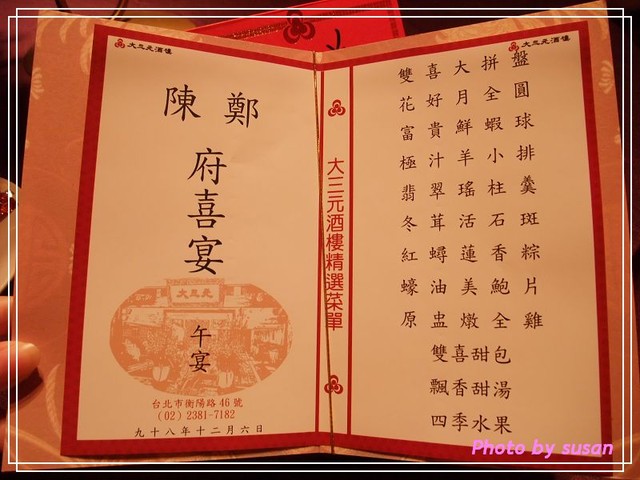 大三元酒樓
陳 鄭
府喜宴
大三元
午宴
台北市衡陽路46號
(02) 2381-7182
九十八年十二月六日
大三元酒樓精選菜單
大三元酒樓
雙喜大拼盤
花好月全圓
富貴鮮蝦球
極汁羊小排
翡翠瑤柱羹
冬茸活石斑
紅蟳蓮香粽
蠔油美鮑片
原盅燉全雞
雙喜甜包
飄香甜湯
四季水果
Photo by susan